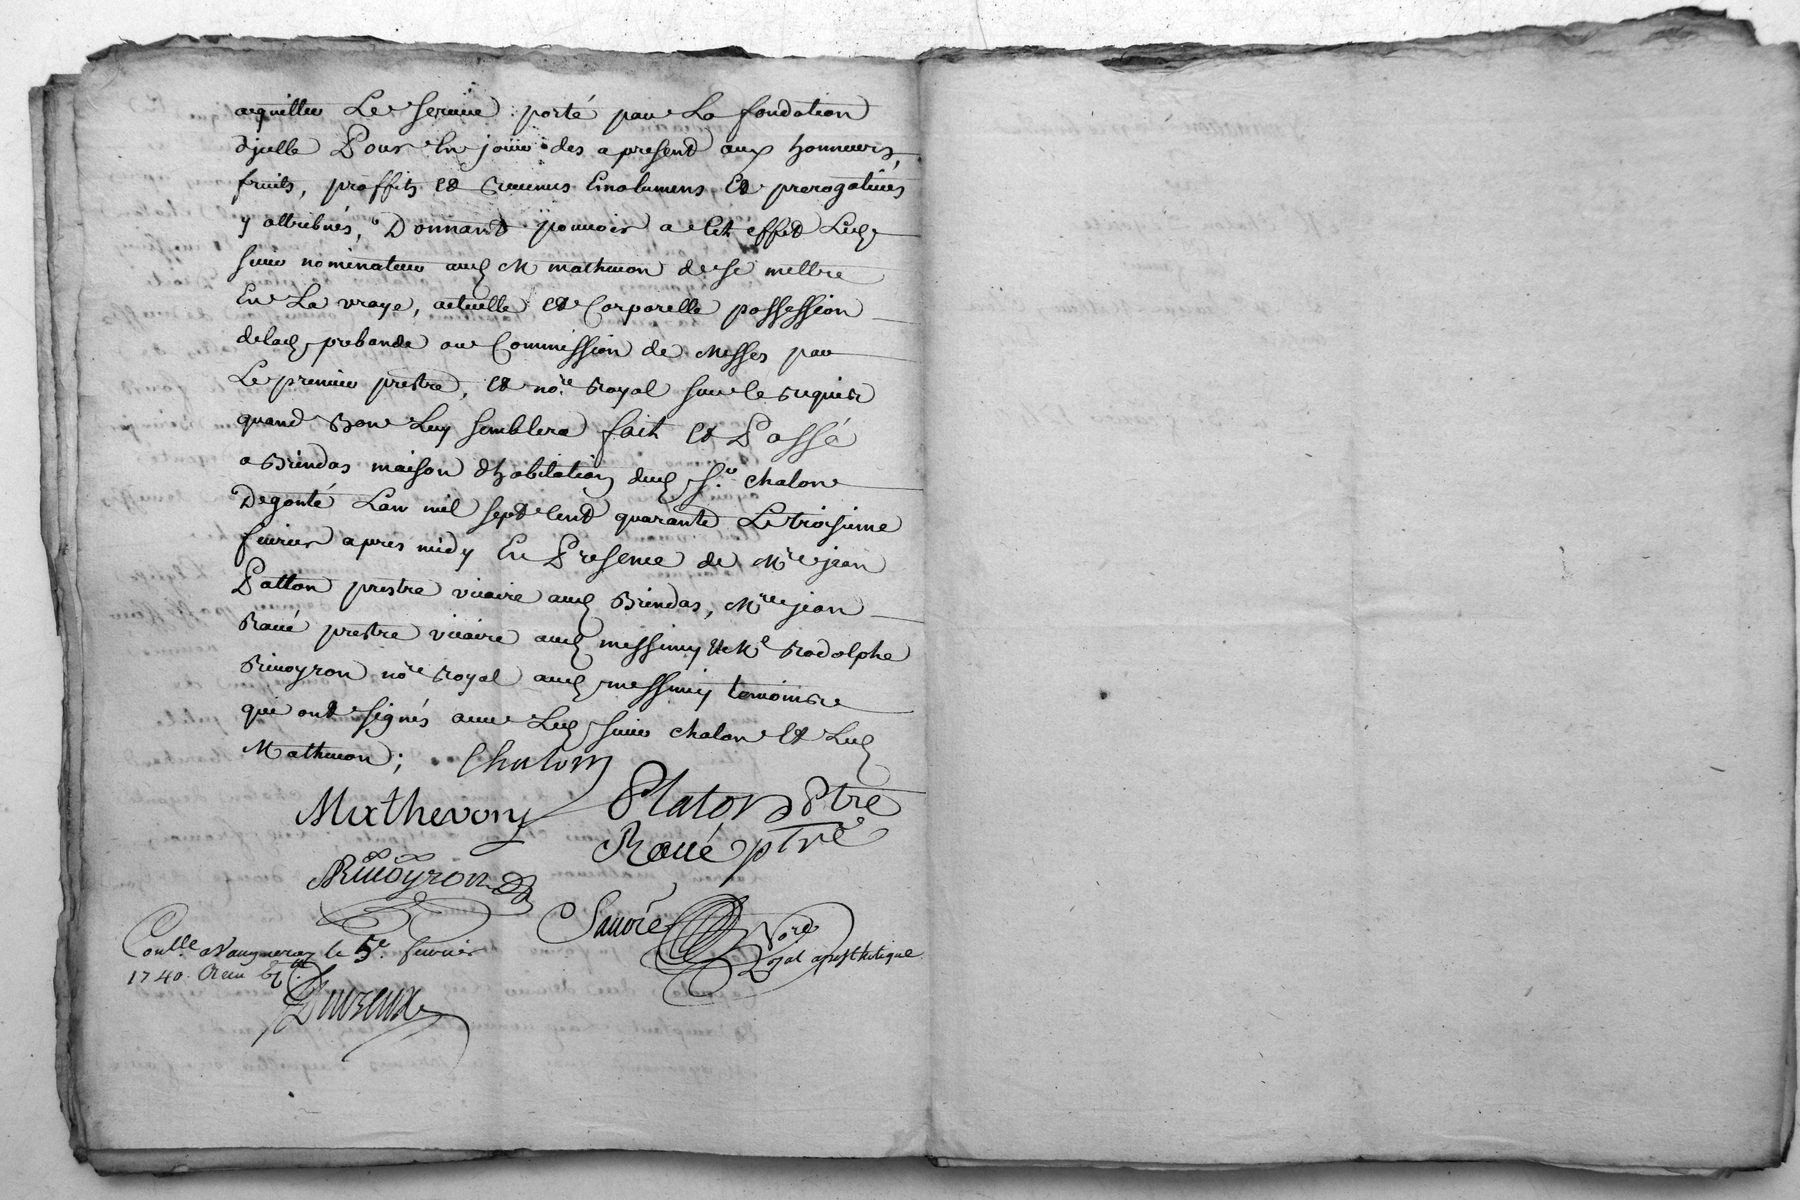 acquitter Le service porté par La fondation
d'jcelle Pour En joüir des a present aux honneurs,
fruits, proffits et revenus Emolumens Et prerogatives
y attribués, Donnant pouvoir a Cet effet Led
sieur nominateur aud M mathevon de se mettre
En La vraye, actuelle et Corporelle possession
delad prebande ou Commission de Messes par
Le premier prestre, et nore Royal sur le requis
quand Bon Luy semblera fait et Passé
a Brindas maison d'habitation dud Sr. chalon
Degonté Lan mil sept Cent quarante Le troisieme
fevrier apres midy En Presence de Mre jean
Platton prestre vicaire aud Brindas, Mre jean
Roüé prestre vicaire aud messimy et Me Rodolphe
Rivoyron nore Royal aud messimy temoins
qui ont signés avec Led sieur chalon et Led
Mathevon;
Chalon
Mathevon
Platon Ptre
Roüé ptre
Rivoyron
Savoie Nore
Royal apostholique
Conlle. a Vaugneray le 5e. fevrier
1740. Receu